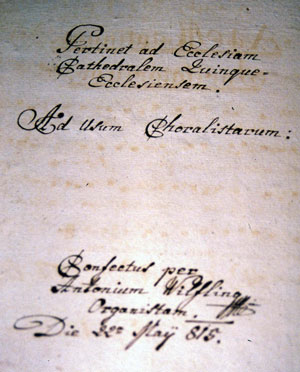 Pertinet ad Ecclesiam
Cathedralem Quinque-
Ecclesiensem.
Ad Usum Choralistarum:
Confectus per
Antonium Wilfling
Organistam.
Die Maÿ 815.